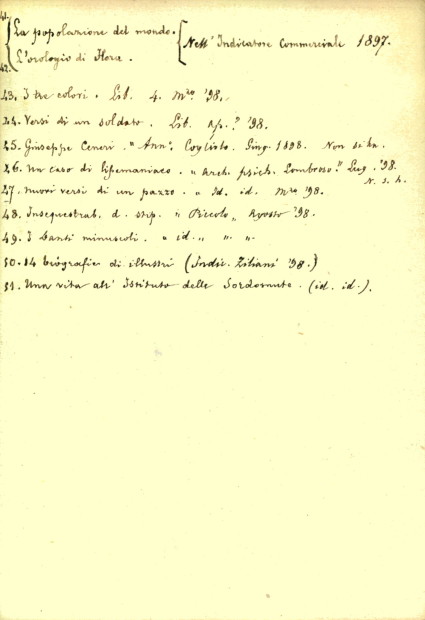 41. La popolazione del mondo. Nell' Indicatore Commerciale 1897.
42. L'orologio di Flora.
43. I tre colori. Lib. 4. Mzo '98.
44. Versi di un soldato. Lib. Ap.e '98.
45. Giuseppe Ceneri. "Ann." Coglioto. Ging. 1898. Non si ha.
46. Un caso di lipemaniaco. "Arch. psich. Lombroso." Lug. '98.
N. s. h.
47. Nuovi versi di un pazzo. " Id. id. Mzo '98.
48. Insequestrab. d. stip. " Piccolo " Agosto '98.
49. I Santi minuscoli. " id. " " "
50. 14 biografie di illustri (Indic. Ziliani '98.)
51. Una vita all' Istituto delle Sordomute. (id. id.).